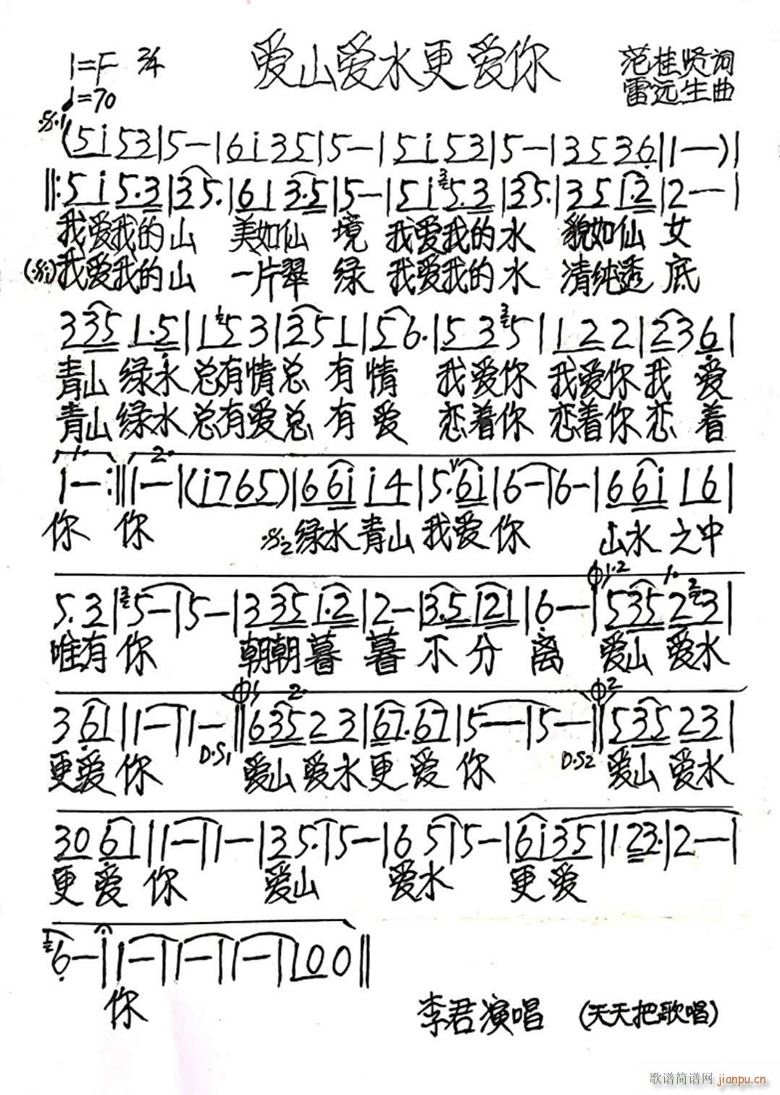 爱山爱水更爱你
1=F 2/4
♩=70
范桂贤词
雷远生曲
(5i53|5—|6i35|5—|5i53|5—|3536|1—)|
‖:5i5.3|35.|6i3.5|5—|5i5.3|35.|351.2|2—|
我爱我的山 美如仙 境 我爱我的水 貌如仙 女
我爱我的山 一片翠 绿 我爱我的水 清纯透 底
3351.5|1 53|3551|56.|535|122|2236|
青山绿水总有情总 有 情 我爱你 我爱你我 爱
青山绿水总有爱总 有 爱 恋着你 恋着你恋 着
1. 2.
1—:‖1—|(i765)|66ii4|5.6i|6—|6—|66i16|
你 你 绿水青山我爱你 山水之中
5.3|5—|5—|3351.2|2—|3.5121|6—|53523|
唯有你 朝朝暮 暮 不 分 离 爱山 爱水
361|1—|1—‖63523|6767|5—|5—‖53523|
更爱你 D.S1 爱山爱水更爱你 D.S2 爱山 爱水
3061|1—|1—|35.|5—|65|5—|6i35|123.|2—|
更爱你 爱山 爱水 更爱
6—i|1—|1—|1—|100‖
你
李君演唱 (天天把歌唱)
歌谱简谱网 jianpu.cn